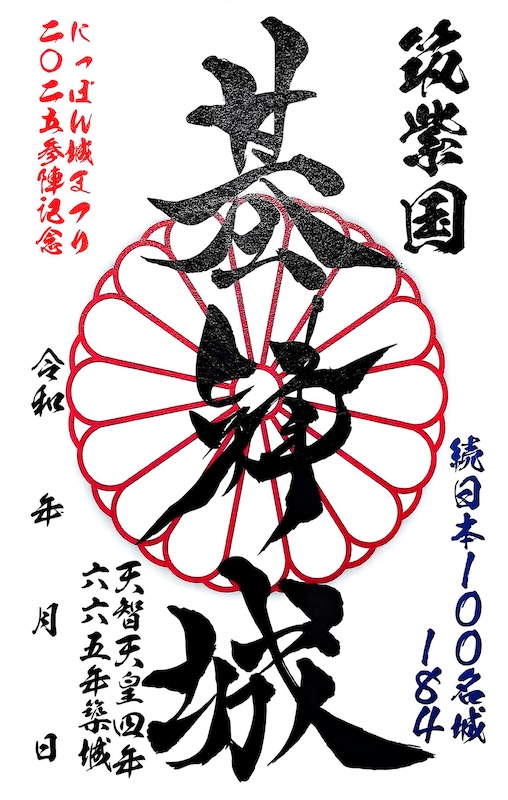 筑紫国
続日本100名城
184
基肄城
天智天皇四年
六六五年築城
にっぽん城まつり
二〇二五参陣記念
令和 年 月 日